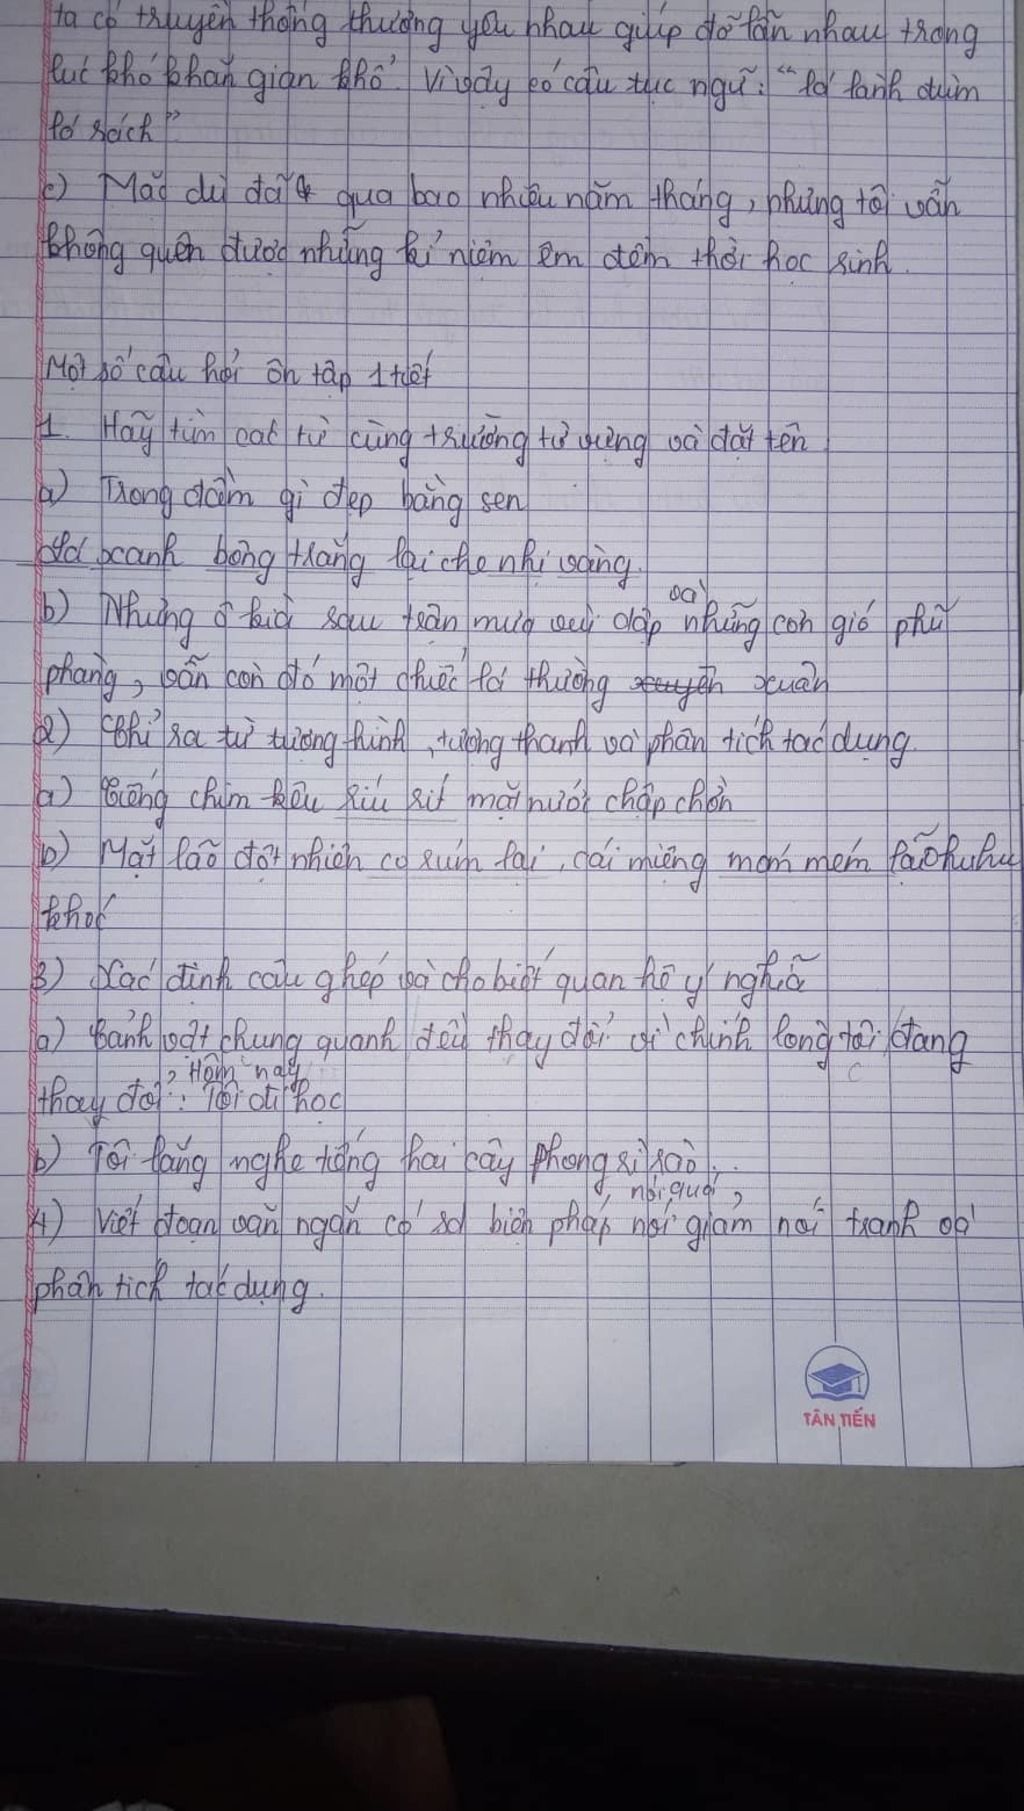 ta có truyền thống thương yêu nhau giúp đỡ lẫn nhau trong
lúc khó khăn gian khổ. Vì vậy có câu tục ngữ: "lá lành đùm
lá rách"
c) Mặc dù đã qua bao nhiêu năm tháng, nhưng tôi vẫn
không quên được những kỉ niệm êm đềm thời học sinh.
Một số câu hỏi ôn tập 1 tiết
1. Hãy tìm các từ cùng trường từ vựng và đặt tên
a) Trong đầm gì đẹp bằng sen
Lá xanh bông trắng lại che nhị vàng.
b) Nhưng ô kìa sau trận mưa vùi dập và những cơn gió phũ
phàng, vẫn còn đó một chiếc lá thường xuân
2) Chỉ ra từ tượng hình, tượng thanh và phân tích tác dụng.
a) Tiếng chim kêu ríu rít mặt nước chập chờn
b) Mặt lão đột nhiên co rúm lại, cái miệng móm mém lão hu hu
khóc
3) Xác định câu ghép và cho biết quan hệ ý nghĩa
a) Cảnh vật chung quanh đều thay đổi vì chính lòng tôi đang
thay đổi: Hôm nay, tôi đi học
b) Tôi lắng nghe tiếng hai cây phong rì rào,..
4) Viết đoạn văn ngắn có sd biện pháp nói quá, nói giảm nói tránh và
phân tích tác dụng.
TÂN TIẾN